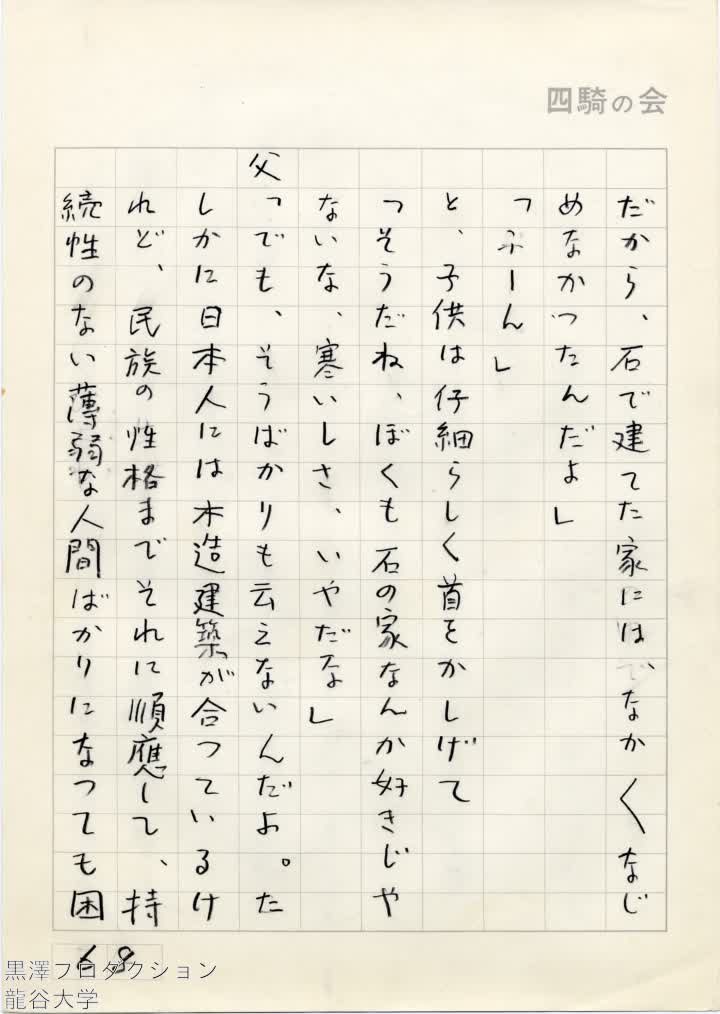 四騎の会
だから、石で建てた家には、なか〱なじ
めなかつたんだよ」
「ふーん」
と、子供は仔細らしく首をかしげて
「そうだね、ぼくも石の家なんか好きじや
ないな、寒いしさ、いやだな」
父「でも、そうばかりも云えないんだよ。た
しかに日本人には木造建築が合つているけ
れど、民族の性格までそれに順應して、持
続性のない薄弱な人間ばかりになつても困
68
黒澤プロダクション
龍谷大学